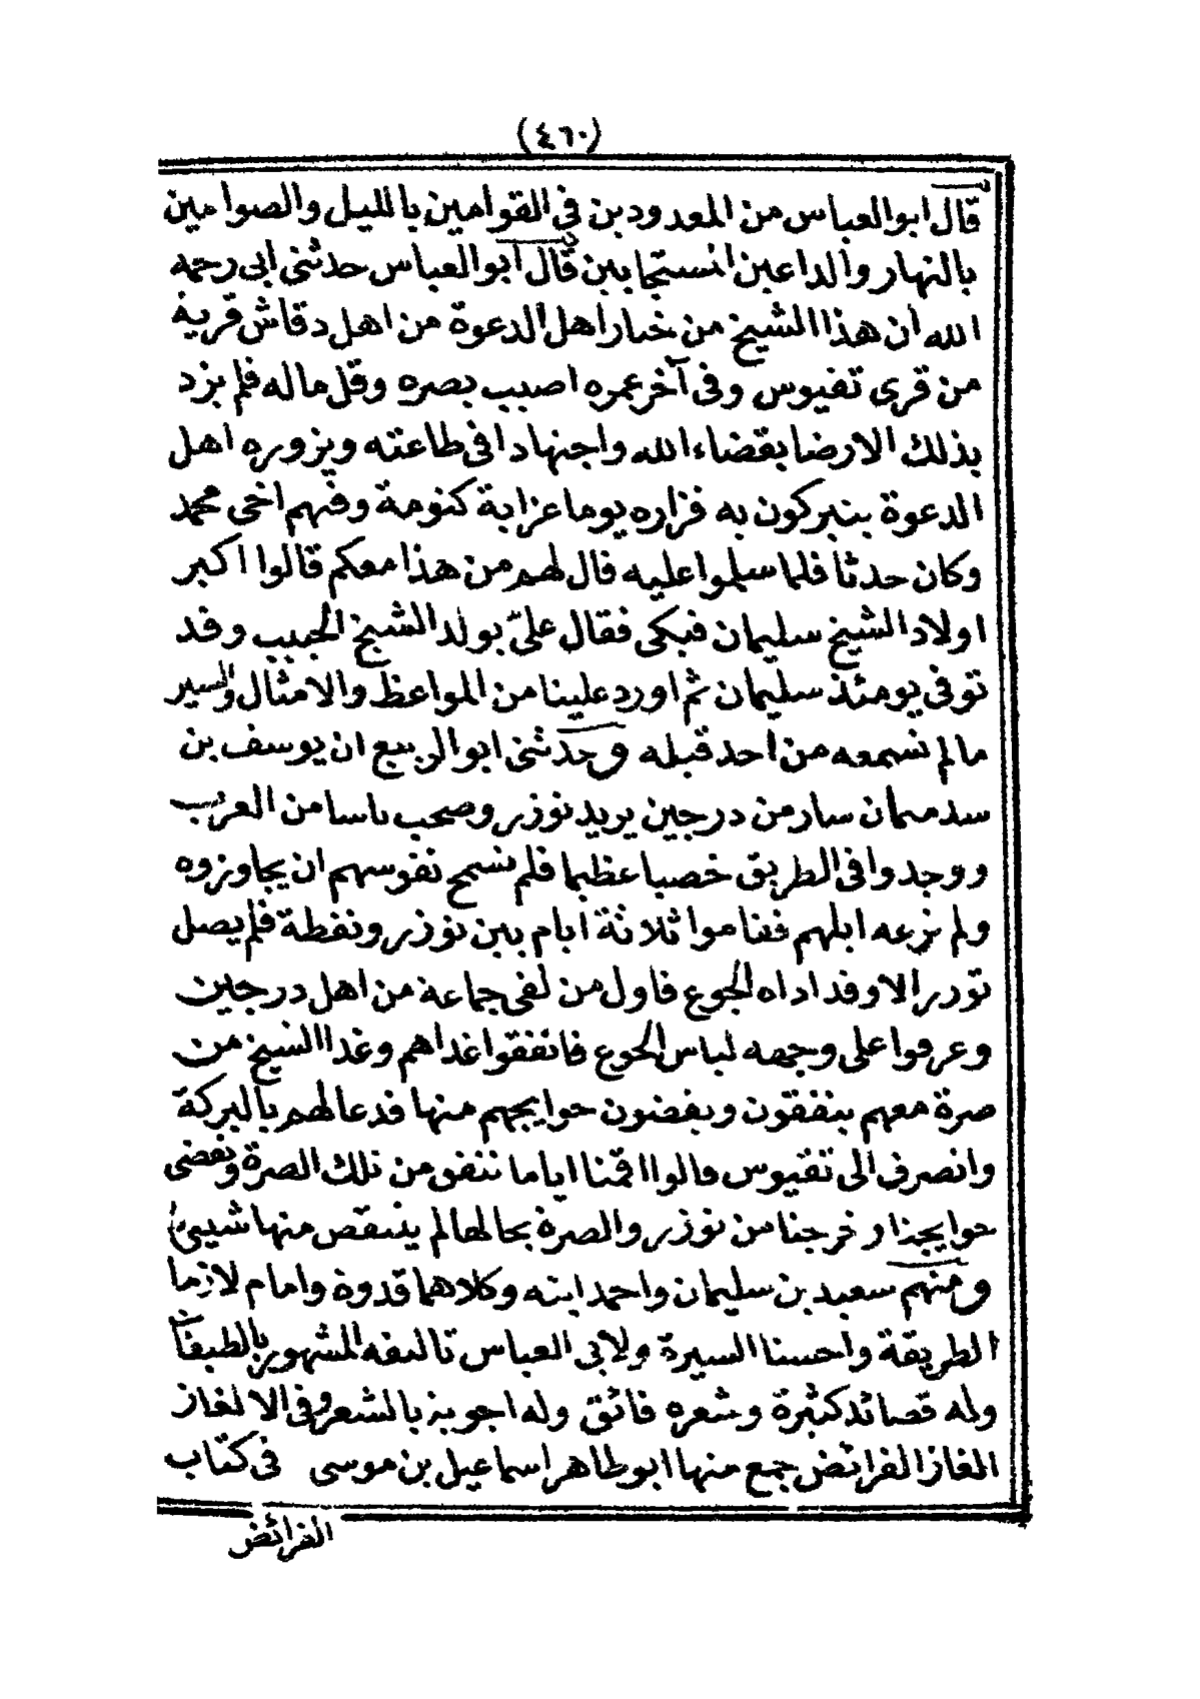 (٤٦٠)
قال ابو العباس من المعدودين فى القوامين بالليل والصوامين
بالنهار والداعين المستجابين قال ابو العباس حدثنى ابى رحمه
الله ان هذا الشيخ من خيار اهل الدعوة من اهل دقاش قرية
من قرى تقيوس وفى آخر عمره اصيب بصره وقل ماله فلم يزد
بذلك الا رضا بقضاء الله واجتهادا فى طاعته ويزوره اهل
الدعوة يتبركون به فزاره يوما عزابة كنومة وفيهم اخى محمد
وكان حدثا فلما سلموا عليه قال لهم من هذا معكم قالوا اكبر
اولاد الشيخ سليمان فبكى فقال علىّ بولد الشيخ الحبيب وقد
توفى يومئذ سليمان ثم اورد علينا من المواعظ والامثال والسير
مالم نسمعه من احد قبله وحدثنى ابو الربيع ان يوسف بن
سدميمان سار من درجين يريد توزر وصحب ناسا من العرب
ووجدوا فى الطريق خصبا عظيما فلم تسمح نفوسهم ان يجاوزوه
ولم ترعه ابلهم فقاموا ثلاثة ايام بين توزر ونفطة فلم يصل
توزر الا وقد اداه الجوع فاول من لقى جماعة من اهل درجين
وعرفوا على وجهه لباس الجوع فانفقوا غداهم وغدا الشيخ من
صرة معهم ينفقون ويقضون حوايجهم منها فدعا لهم بالبركة
وانصرف الى تقيوس قالوا اقمنا اياما ننفق من تلك الصرة ونقضى
حوايجنا وخرجنا من توزر والصرة بحالها لم ينتقص منها شيئ
ومنهم سعيد بن سليمان واحمد ابنه وكلاهما قدوة وامام لازما
الطريقة واحسنا السيرة ولابى العباس تاليفه المشهور بالطبقات
وله قصائد كثيرة وشعره فائق وله اجوبة بالشعر وفى الالغاز
الغاز الفرائض جمع منها ابو طاهر اسماعيل بن موسى فى كتاب
الفرائض